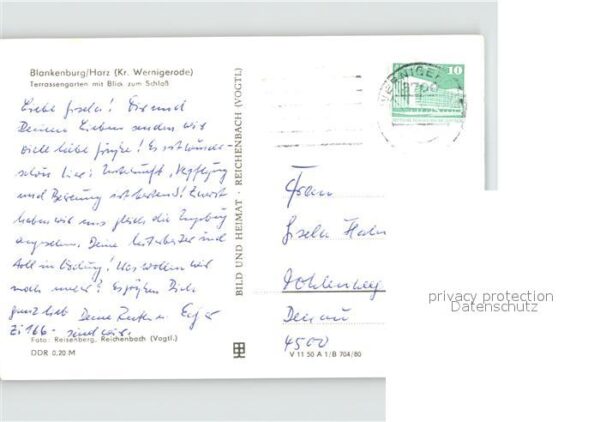 Blankenburg/Harz (Kr. Wernigerode)
Terrassengarten mit Blick zum Schloß
Liebe Gisela! Dir und
Deinen Lieben senden wir
viele liebe Grüße! Es ist wunder-
schön hier: Unterkunft, Verpflegung
und Betreuung
haben wir uns gleich die Umgebung
angesehen. Deine
toll in Ordnung! Was wollen wir
noch mehr?
ganz lieb Deine
Zi 166 - sind wir.
Foto: Reisenberg, Reichenbach (Vogtl.)
DDR 0,20 M
BILD UND HEIMAT · REICHENBACH (VOGTL)
V 11 50 A 1/B 704/80
WERNIGE
10
Frau
Gisela Hahn
Dessau
4500
privacy protection
Datenschutz